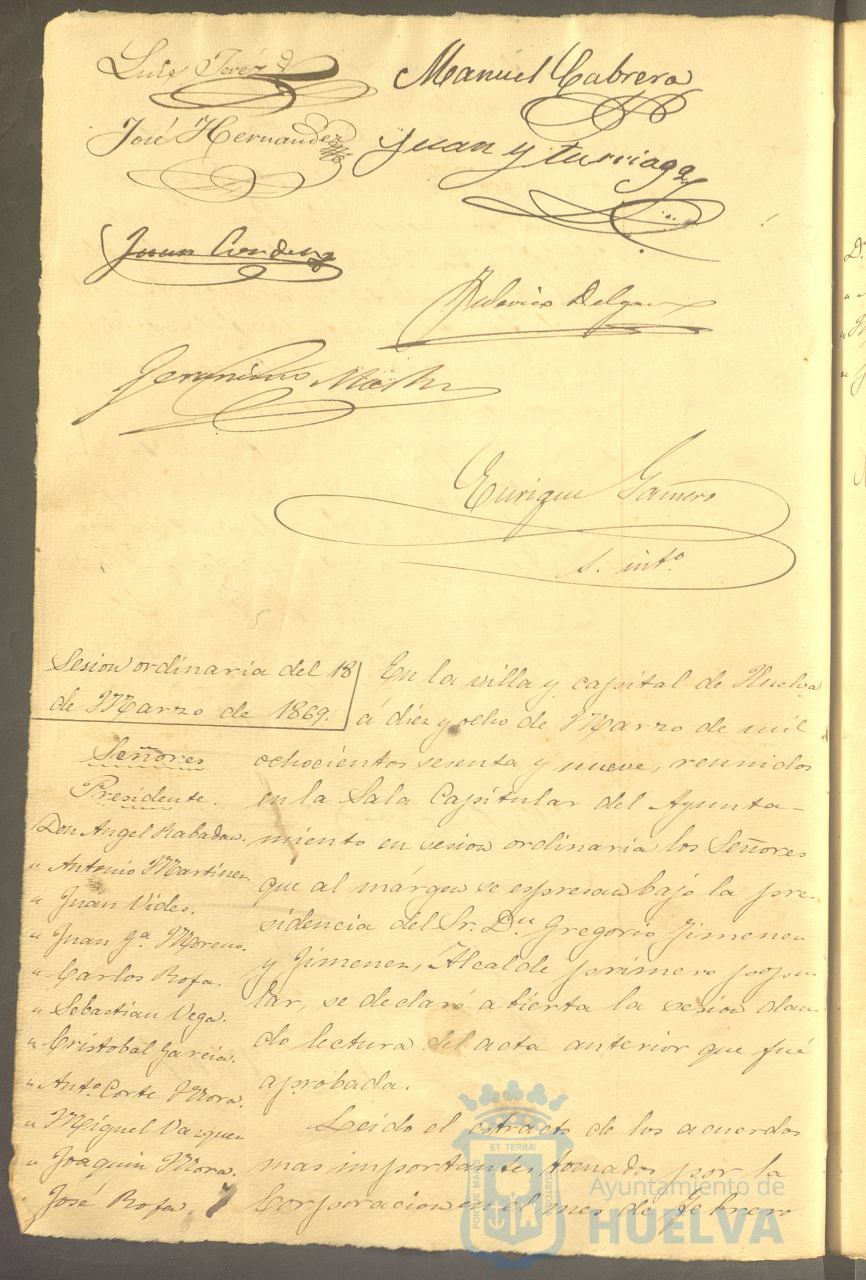 Luis Jeréz
Manuel Cabrera
José Hernandez
Juan Yturriaga
Juan
Federico Delgado
Jeronimo
Enrique Gamero
s. intº
Sesion ordinaria del 18
de Marzo de 1869.
Señores
Presidente.
Don Angel Rabadan.
" Antonio Martinez
" Juan Vides.
" Juan Gª Moreno.
" Carlos Rofa.
" Sebastian Vega.
" Cristobal Garcia.
" Antº Corte Mora.
" Miguel Vazquez
" Joaquin Mora.
" José Rofa.
En la villa y capital de Huelva
á diez y ocho de Marzo de mil
ochocientos sesenta y nueve, reunidos
en la Sala Capitular del Ayunta-
miento en sesion ordinaria los Señores
que al márgen se espresan bajo la pre-
sidencia del Sr. Dn Gregorio Jimenez
y Jimenez, Alcalde primero popu-
lar, se declaró abierta la sesion dan-
do lectura del acta anterior que fué
aprobada.
Leido el estracto de los acuerdos
mas importantes tomados por la
Corporacion en el mes de Febrero
ET TERRÆ
PORTUS MARIS
CUSTODIA
Ayuntamiento de
HUELVA